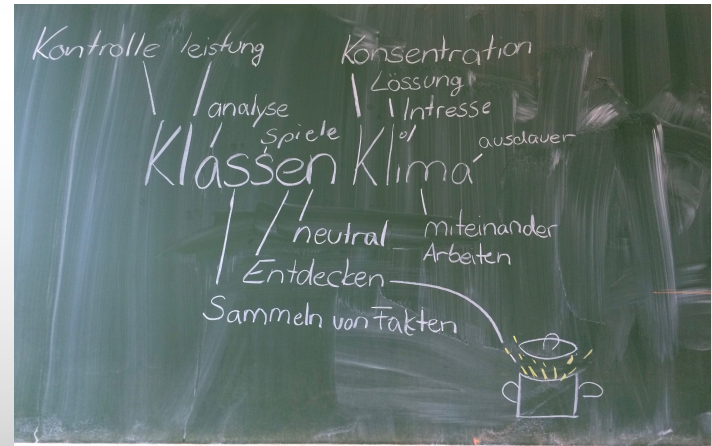 Kontrolle leistung Konsentration
Lössung
analyse Intresse
Spiele ausdauer
Klassen Klima
neutral miteinander
Arbeiten
Entdecken
Sammeln von Fakten